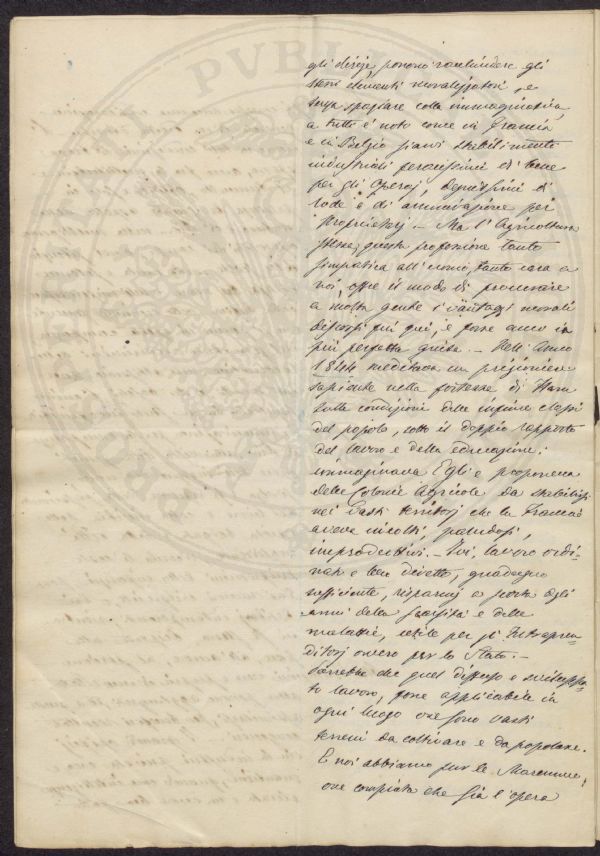 gli dirije, ponno racchiudere gli
stessi elementi moralizzatori, e
senza spaziare colla immaginativa,
a tutti è noto come in Francia
e in Belgio sianvi stabilimenti
industriali feracissimi di bene
per gli Operaj, degnissimi di
lode e di ammirazione per i
Proprietarj. - Ma l'Agricoltura
stessa, questa professione tanto
simpatica all'uomo, tanto cara a
noi, offre il modo di procurare
a molta gente i vantaggi morali
discorsi fin qui, e forse anco in
più perfetta guisa. - Nell'Anno
1844 meditava un prigioniero
sapiente nella fortezza di Ham
sulla condizione delle infime classi
del popolo, sotto il doppio rapporto
del lavoro e della educazione;
immaginava Egli e proponeva
delle Colonie Agricole da stabilirsi
nei Vasti territorj che la Francia
aveva incolti, paludosi,
improduttivi. - Ivi, lavoro ordi-
nato e ben diretto, guadagno
sufficiente, risparmj a pro degli
anni della scarsità e delle
malattie, utile per gl'Intrapren-
ditori ovvero per lo Stato. -
Sarebbe che quel discorso e sviluppa-
to lavoro, fosse applicabile in
ogni luogo ove sono vasti
terreni da coltivare e da popolare.
E noi abbiamo pur le Maremme,
ove compiuta che sia l'opera